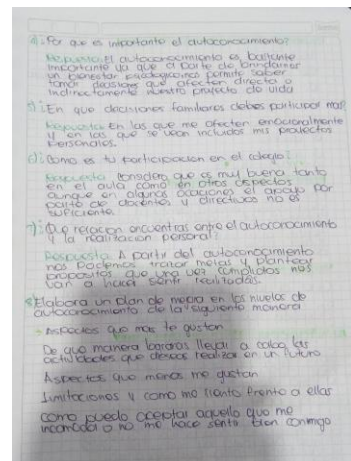 4): Por que es importante el autoconocimiento?
Respuesta: El autoconocimiento es bastante
importante ya que a parte de brindarnos
un bienestar psicologico nos permite saber
tomar decisiones que afecten directa o
indirectamente nuestro proyecto de vida
5): En que decisiones familiares debes participar mas?
Respuesta: En las que me afecten emocionalmente
y en las que se vean incluidos mis proyectos
personales.
6): Como es tu participacion en el colegio?
Respuesta: Considero que es muy buena tanto
en el aula como en otros aspectos
aunque en algunas ocaciones el apoyo por
parte de docentes y directivos no es
suficiente.
7): Que relacion encuentras entre el autoconocimiento
y la realizacion personal?
Respuesta: A partir del autoconocimiento
nos podemos trazar metas y plantear
propositos que una vez cumplidos nos
van a hacer sentir realizados.
8) Elabora un plan de mejora en los niveles de
autoconocimiento de la siguiente manera
- Aspectos que mas te gustan
De que manera lograras llevar a cabo las
actividades que deseas realizar en un futuro
Aspectos que menos me gustan
Limitaciones y como me siento frente a ellas
como puedo aceptar aquello que me
incomoda o no me hace sentir bien conmigo